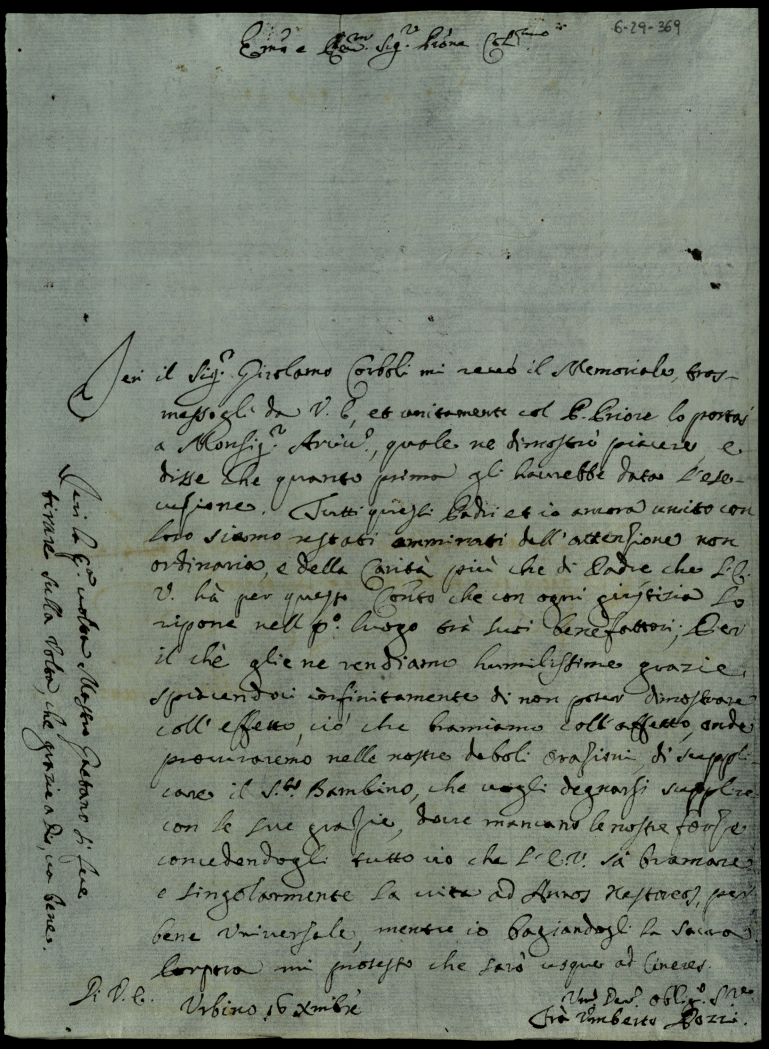 6-29-369
Em̃o e Reu.mo Sig.r Prõne Col.mo
Ieri il Sig.r Girolamo Corboli mi recò il Memoriale, tras-
messogli da V. E, et unitamente col P. Priore lo portai
a Monsig.r Arciu.o, quale ne dimostrò piacere, e
disse che quanto prima gli haurebbe data l'ese-
cuzione. Tutti questi Padri et io ancora unito con
loro siamo restati ammirati dell'attenzione non
ordinaria, e della Carità più che di Padre che L'E.
V. hà per questo Conto che con ogni giustizia lo
ripone nell p.o luogo trà suoi benefattori; Per
il chè gliene rendiamo humilissime grazie,
spiacendoci infinitamente di non poter dimostrare
coll'effetto, ciò che bramiamo coll'affetto, onde
procuraremo nelle nostre deboli orazioni di suppli-
care il S.to Bambino, che vogli degnarsi supplire
con le sue grazie, doue mancano le nostre forze
concedendogli tutto ciò che L'E.V. sà bramare
e singolarmente la uita ad Annos Nestoreos, per
bene Vniuersale, mentre io bagiandogli la Sacra
Porpora mi protesto che sarò usque ad Cineres.
Di V. E.
Vrbino 16 Xmbre
Vm.o Deu.o Oblig.o Se.re
Frà Vmberto Pozzi.
Ieri la p.a uolta Mastro Gaetano si fece
tirare sulla Volta, che grazie a Dio, ua bene.